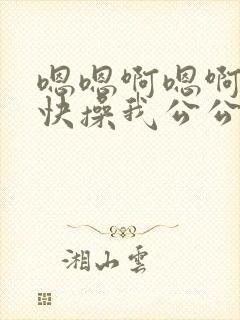 嗯嗯啊嗯啊
快操我公公
湘山雲